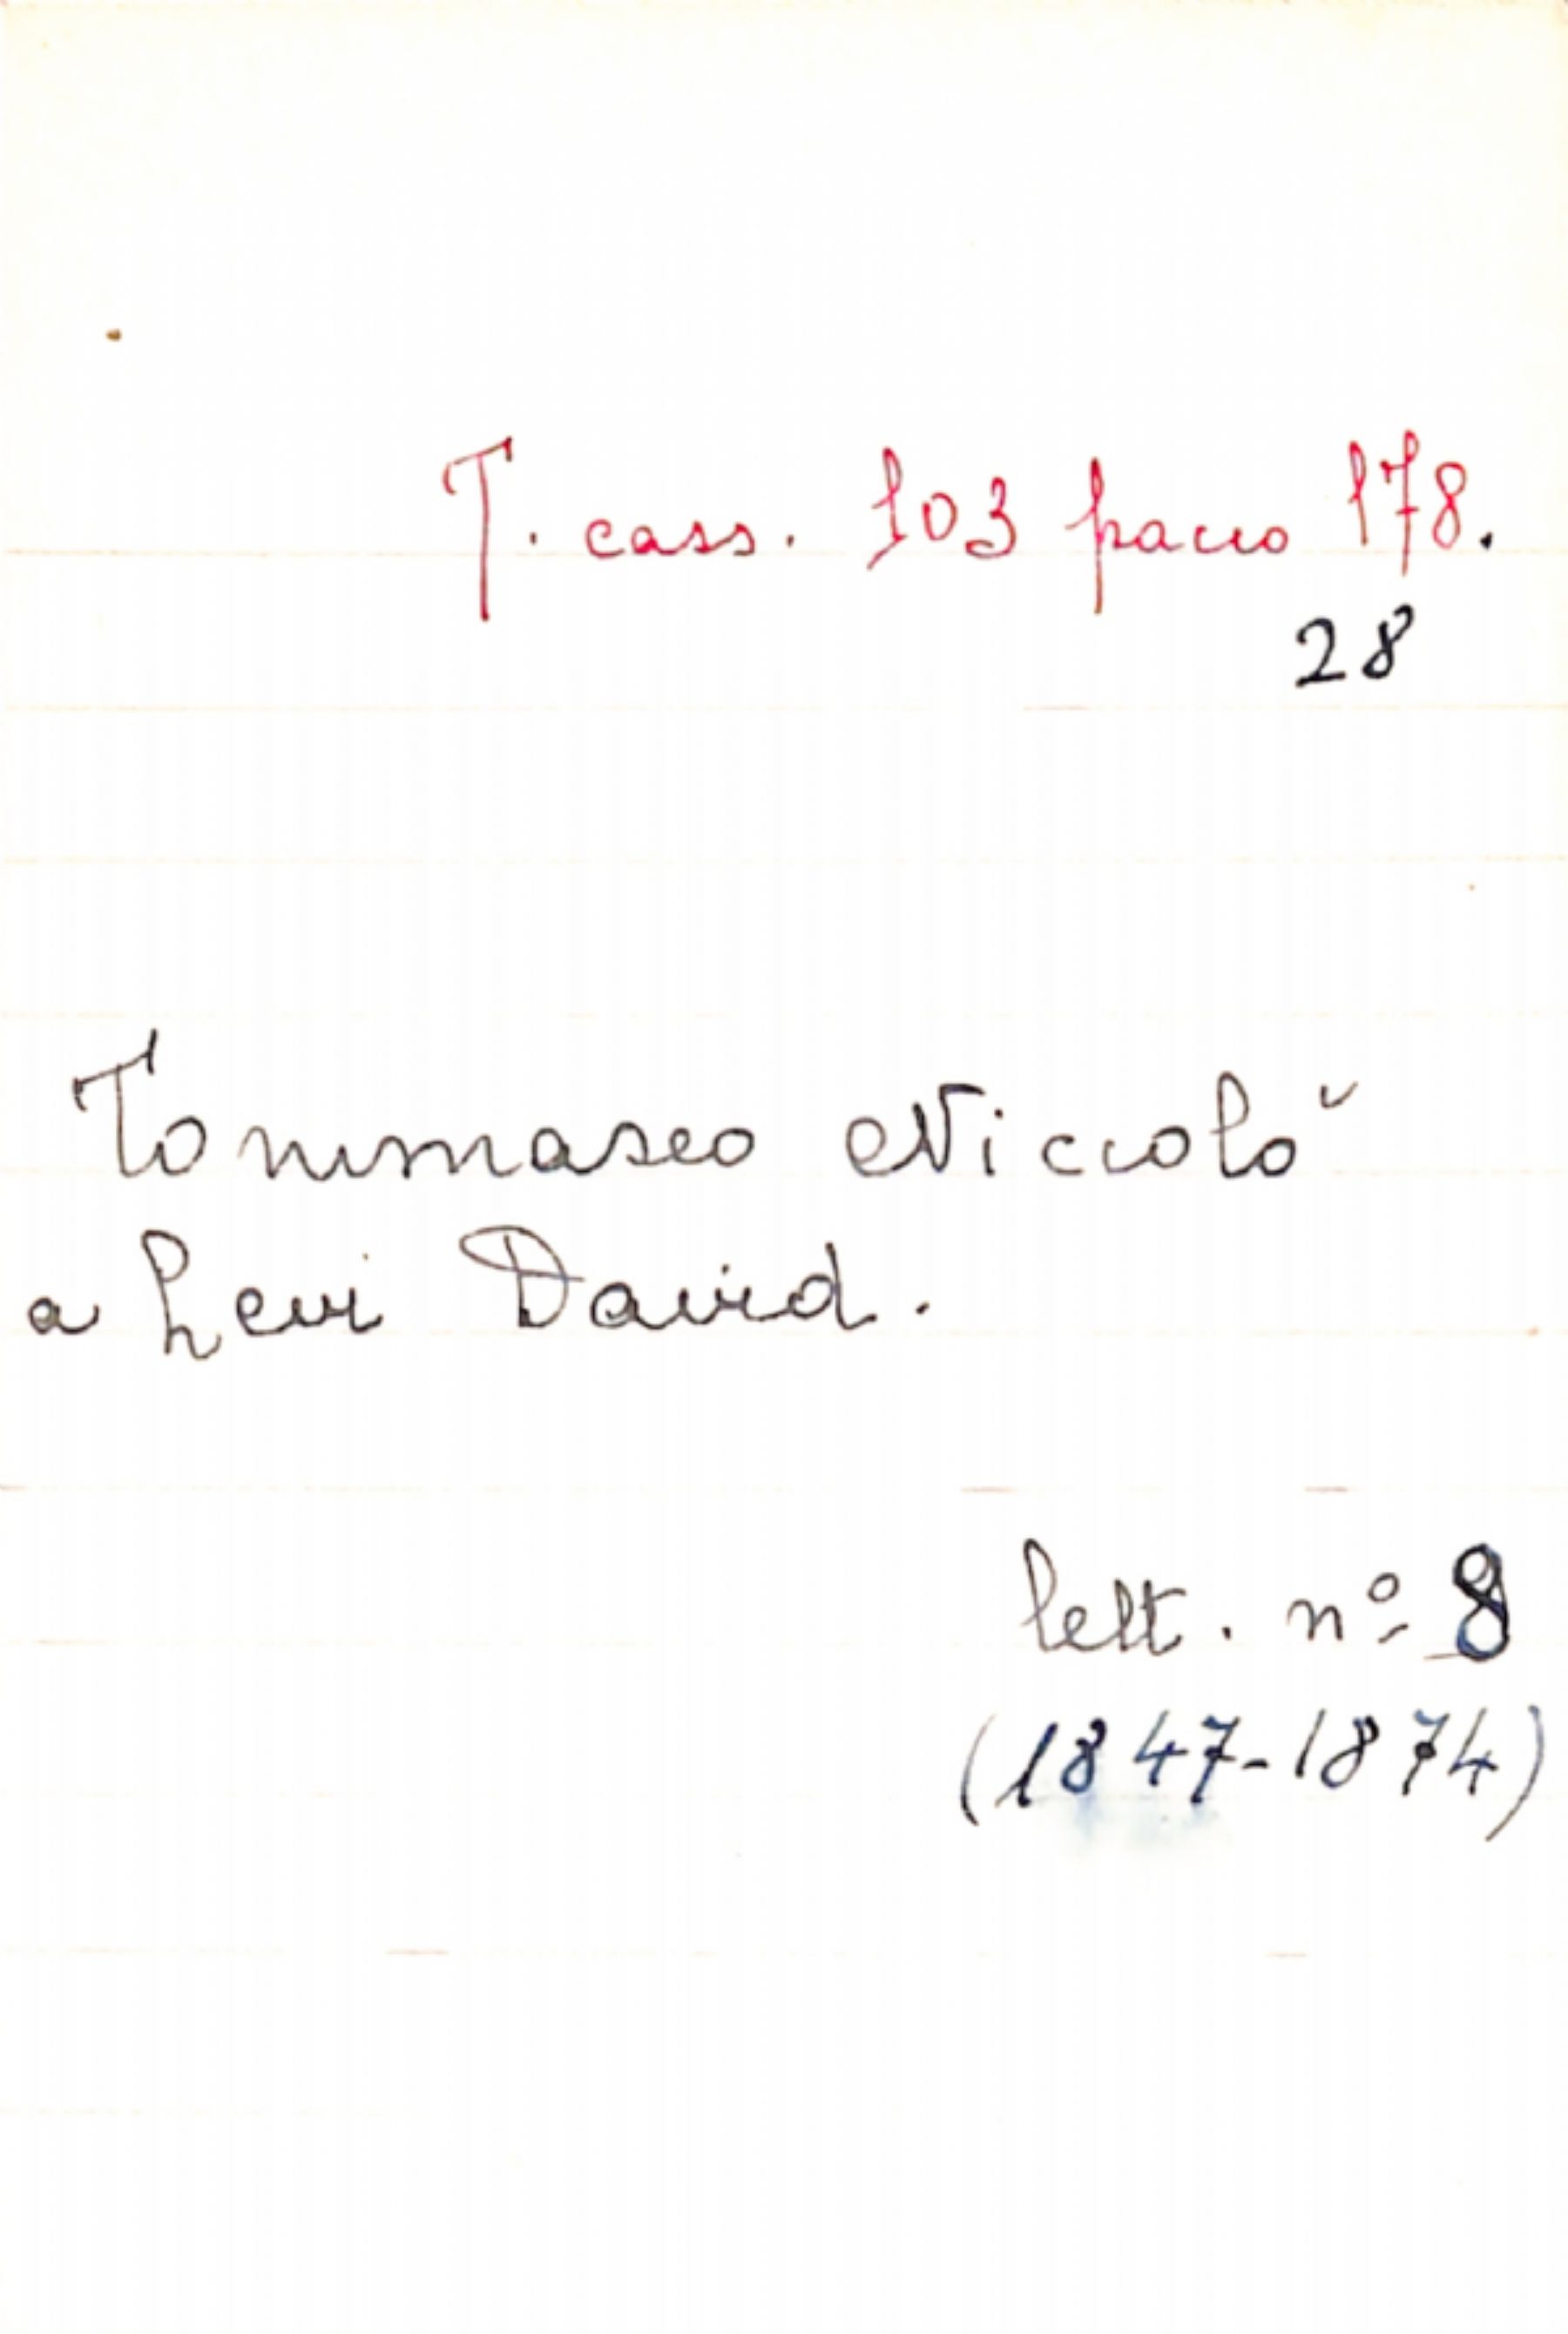 T. cass. 103 pacco 178.
28
Tommaseo Niccolò
a Levi David.
lett. nº 8
(1847-1874)